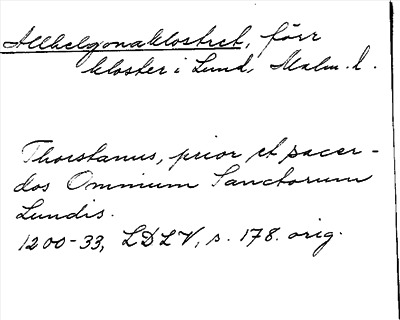 Allhelgonaklostret, förr
kloster i Lund, Malm. l.
Thorstanus, prior et sacer-
dos Omnium Sanctorum
Lundis.
1200-33, LDLV, s. 178. orig.